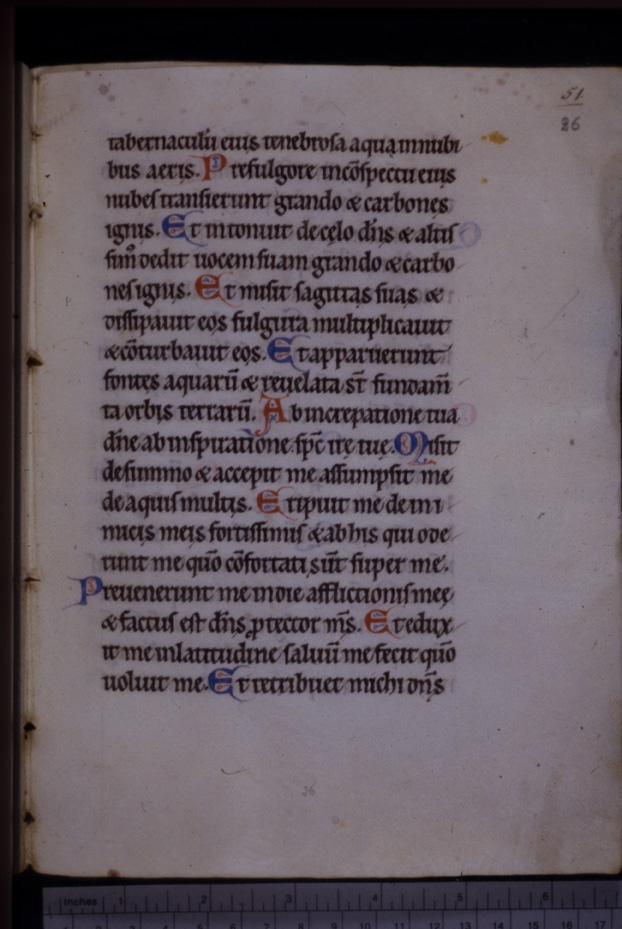 51.
86
tabernaculū eius tenebrosa aqua innubi
bus aeris. Prefulgore incōspectu eius
nubes transierunt grando & carbones
ignis. Et intonuit decęlo dñs & altis
sim᷒ dedit uocem suam grando & carbo
nes ignis. Et misit sagittas suas &
dissipauit eos fulgura multiplicauit
& cōturbauit eos. Et apparuerunt
fontes aquarū & reuelata st̄ fundam̄
ta orbis terrarū. Ab increpatione tua
dñe ab inspiratione spc̄ irę tuę. Misit
desummo & accepit me assumpsit me
de aquis multis. Eripuit me de ini
micis meis fortissimis & ab his qui ode
runt me quō cōfortati sūt super me.
Preuenerunt me indie afflictionis meę
& factus est dñs ꝓtector ms̄. Et edux
it me inlatitudine saluū me fecit quō
uoluit me. Et retribuet michi dñs
36
Inches 1 2 3 4 5 6
1 2 3 4 5 6 7 8 9 10 11 12 13 14 15 16 17